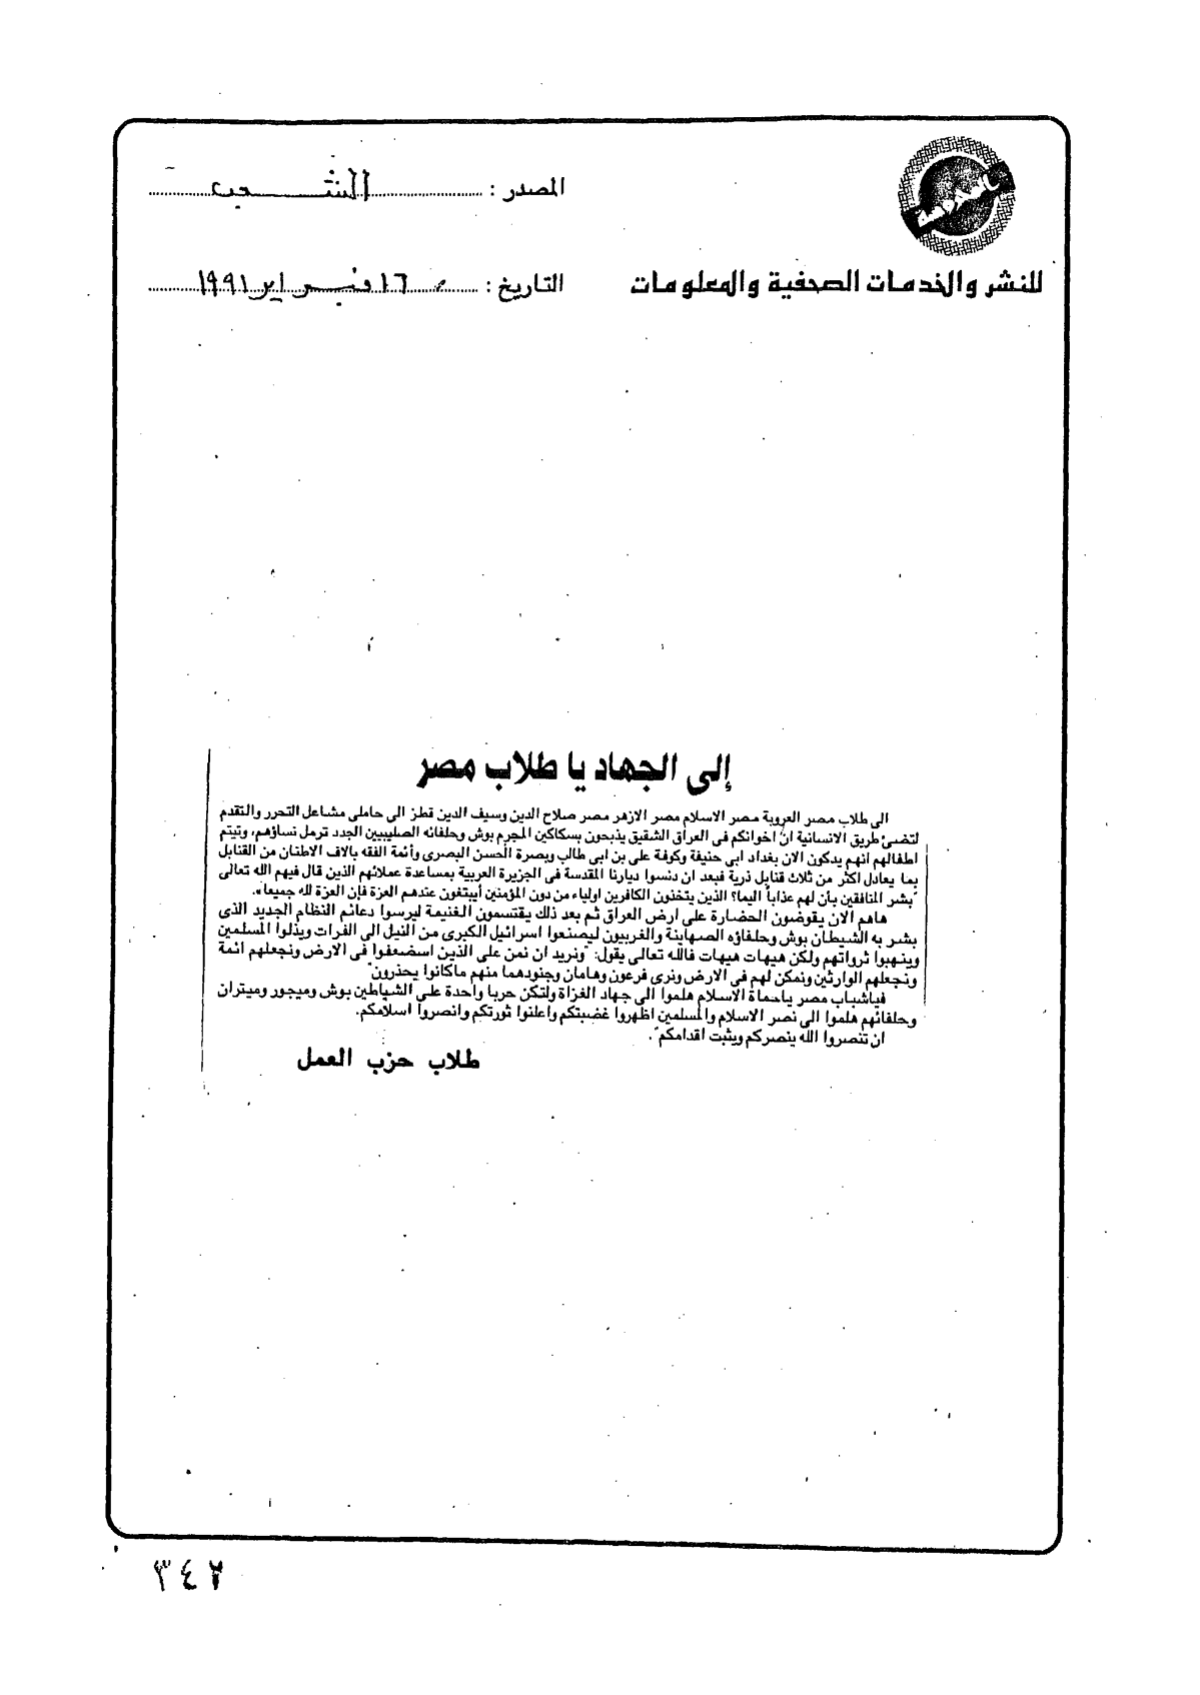 المصدر : الشعب
للنشر والخدمات الصحفية والمعلومات
التاريخ : ١٦ فبراير ١٩٩١
إلى الجهاد يا طلاب مصر
الى طلاب مصر العروبة مصر الاسلام مصر الازهر مصر صلاح الدين وسيف الدين قطز الى حاملى مشاعل التحرر والتقدم
لتضئ طريق الانسانية ان اخوانكم فى العراق الشقيق يذبحون بسكاكين المجرم بوش وحلفائه الصليبيين الجدد ترمل نساؤهم، وتيتم
اطفالهم انهم يدكون الان بغداد ابى حنيفة وكوفة على بن ابى طالب وبصرة الحسن البصرى وأئمة الفقه بالاف الاطنان من القنابل
بما يعادل اكثر من ثلاث قنابل ذرية فبعد ان دنسوا ديارنا المقدسة فى الجزيرة العربية بمساعدة عملائهم الذين قال فيهم الله تعالى
"بشر المنافقين بأن لهم عذاباً اليما؟ الذين يتخذون الكافرين اولياء من دون المؤمنين أيبتغون عندهم العزة فإن العزة لله جميعا".
هاهم الان يقوضون الحضارة على ارض العراق ثم بعد ذلك يقتسمون الغنيمة ليرسوا دعائم النظام الجديد الذى
بشر به الشيطان بوش وحلفاؤه الصهاينة والغربيون ليصنعوا اسرائيل الكبرى من النيل الى الفرات ويذلوا المسلمين
وينهبوا ثرواتهم ولكن هيهات هيهات فالله تعالى يقول: "ونريد ان نمن على الذين استضعفوا فى الارض ونجعلهم ائمة
ونجعلهم الوارثين ونمكن لهم فى الارض ونرى فرعون وهامان وجنودهما منهم ماكانوا يحذرون"
فياشباب مصر ياحماة الاسلام هلموا الى جهاد الغزاة ولتكن حربا واحدة على الشياطين بوش وميجور وميتران
وحلفائهم هلموا الى نصر الاسلام والمسلمين اظهروا غضبتكم واعلنوا ثورتكم وانصروا اسلامكم.
ان تنصروا الله ينصركم ويثبت اقدامكم".
طلاب حزب العمل
٣٤٢